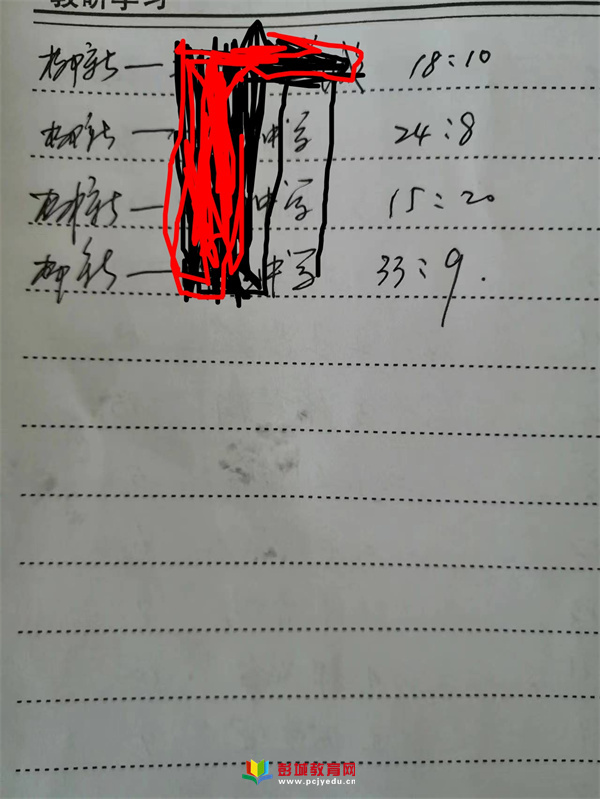 教研学习
柳新— 18:10
柳新— 中学 24:8
柳新— 中学 15:20
柳新— 中学 33:9.
彭城教育网
www.pcjyedu.cn